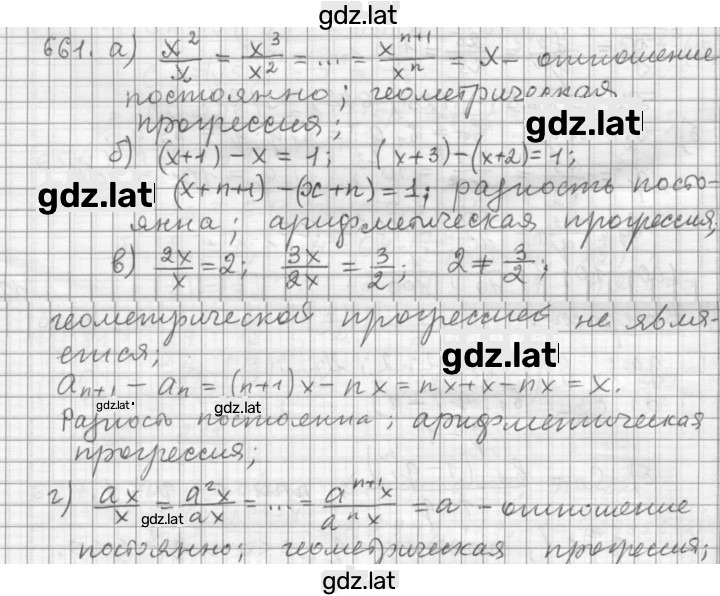 gdz.lat
661. а) x²/x = x³/x² = ... = xⁿ⁺¹/xⁿ = x – отношение
постоянно; геометрическая
gdz.lat
прогрессия;
б) (x+1) - x = 1; (x+3)-(x+2)=1;
gdz.lat (x+n+1) -(x+n)=1; разность посто-
янна; арифметическая прогрессия;
в) 2x/x = 2; 3x/2x = 3/2; 2 ≠ 3/2;
геометрической прогрессией не явля-
ется;
gdz.lat
aₙ₊₁ - aₙ = (n+1)x - nx = nx+x-nx = x.
gdz.lat gdz.lat
Разность постоянна; арифметическая
прогрессия;
г) ax/x = a²x/ax = ... = aⁿ⁺¹x/aⁿx = a - отношение
gdz.lat
постоянно; геометрическая прогрессия;
gdz.lat